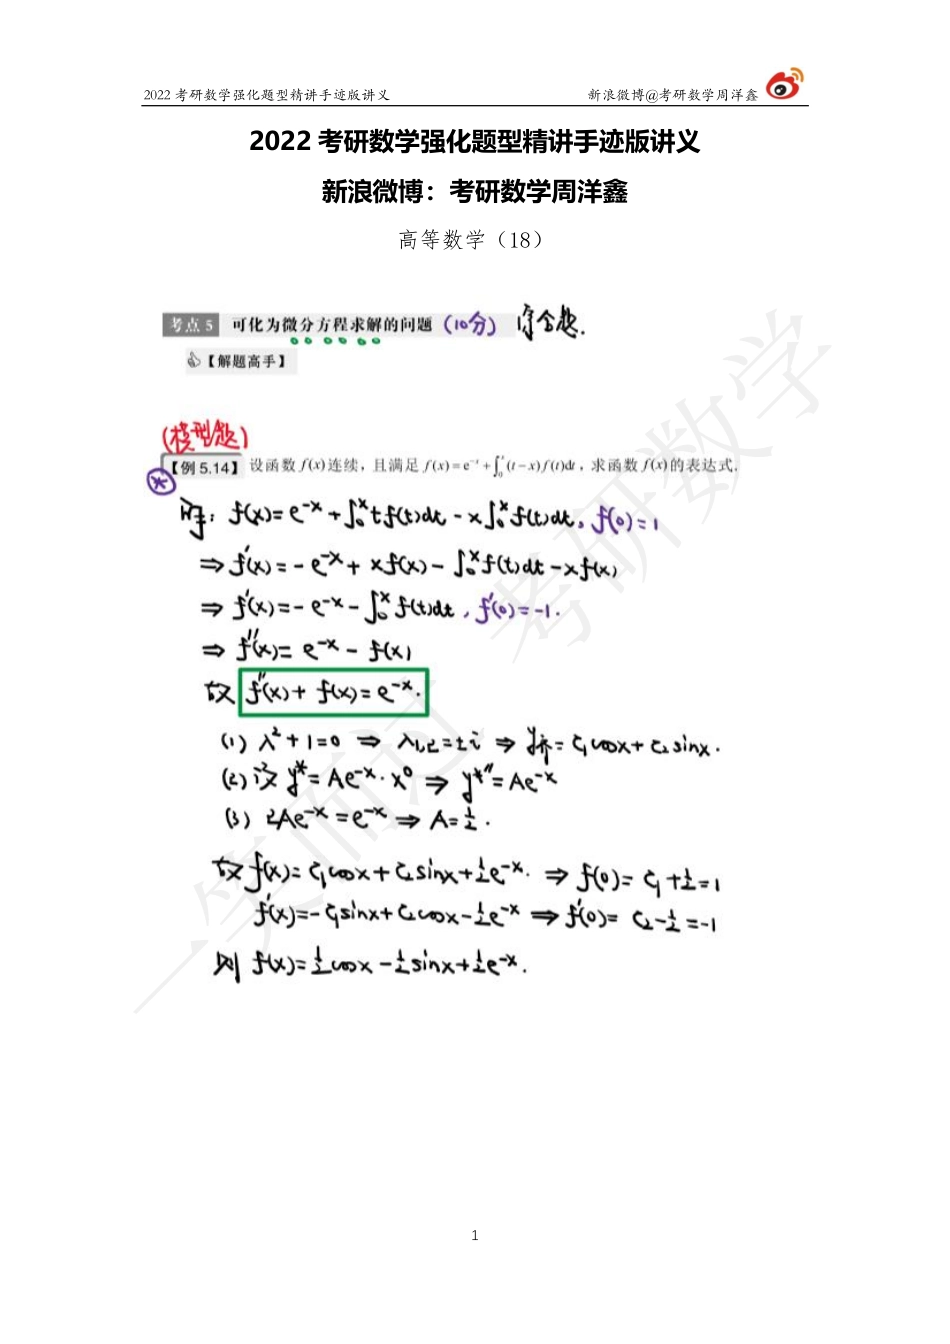 2022 考研数学强化题型精讲手迹版讲义 新浪微博@考研数学周洋鑫
2022 考研数学强化题型精讲手迹版讲义
新浪微博：考研数学周洋鑫
高等数学（18）
考点 5 可化为微分方程求解的问题 (10分) 综合题.
【解题高手】
(模型题)
【例 5.14】 设函数 f(x)连续，且满足 f(x)=e⁻ˣ+∫₀ˣ(t−x)f(t)dt，求函数 f(x)的表达式.
解: f(x)=e⁻ˣ+∫₀ˣtf(t)dt−x∫₀ˣf(t)dt, f(0)=1
⇒ f′(x)=−e⁻ˣ+xf(x)−∫₀ˣf(t)dt−xf(x)
⇒ f′(x)=−e⁻ˣ−∫₀ˣf(t)dt, f′(0)=−1.
⇒ f″(x)=e⁻ˣ−f(x)
故 f″(x)+f(x)=e⁻ˣ.
(1) λ²+1=0 ⇒ λ₁,₂=±i ⇒ y齐=C₁cosx+C₂sinx.
(2) 设 y*=Ae⁻ˣ·x⁰ ⇒ y*″=Ae⁻ˣ
(3) 2Ae⁻ˣ=e⁻ˣ ⇒ A=½.
故 f(x)=C₁cosx+C₂sinx+½e⁻ˣ. ⇒ f(0)=C₁+½=1
f′(x)=−C₁sinx+C₂cosx−½e⁻ˣ ⇒ f′(0)=C₂−½=−1
则 f(x)=½cosx−½sinx+½e⁻ˣ.
一笑而过 考研数学
1